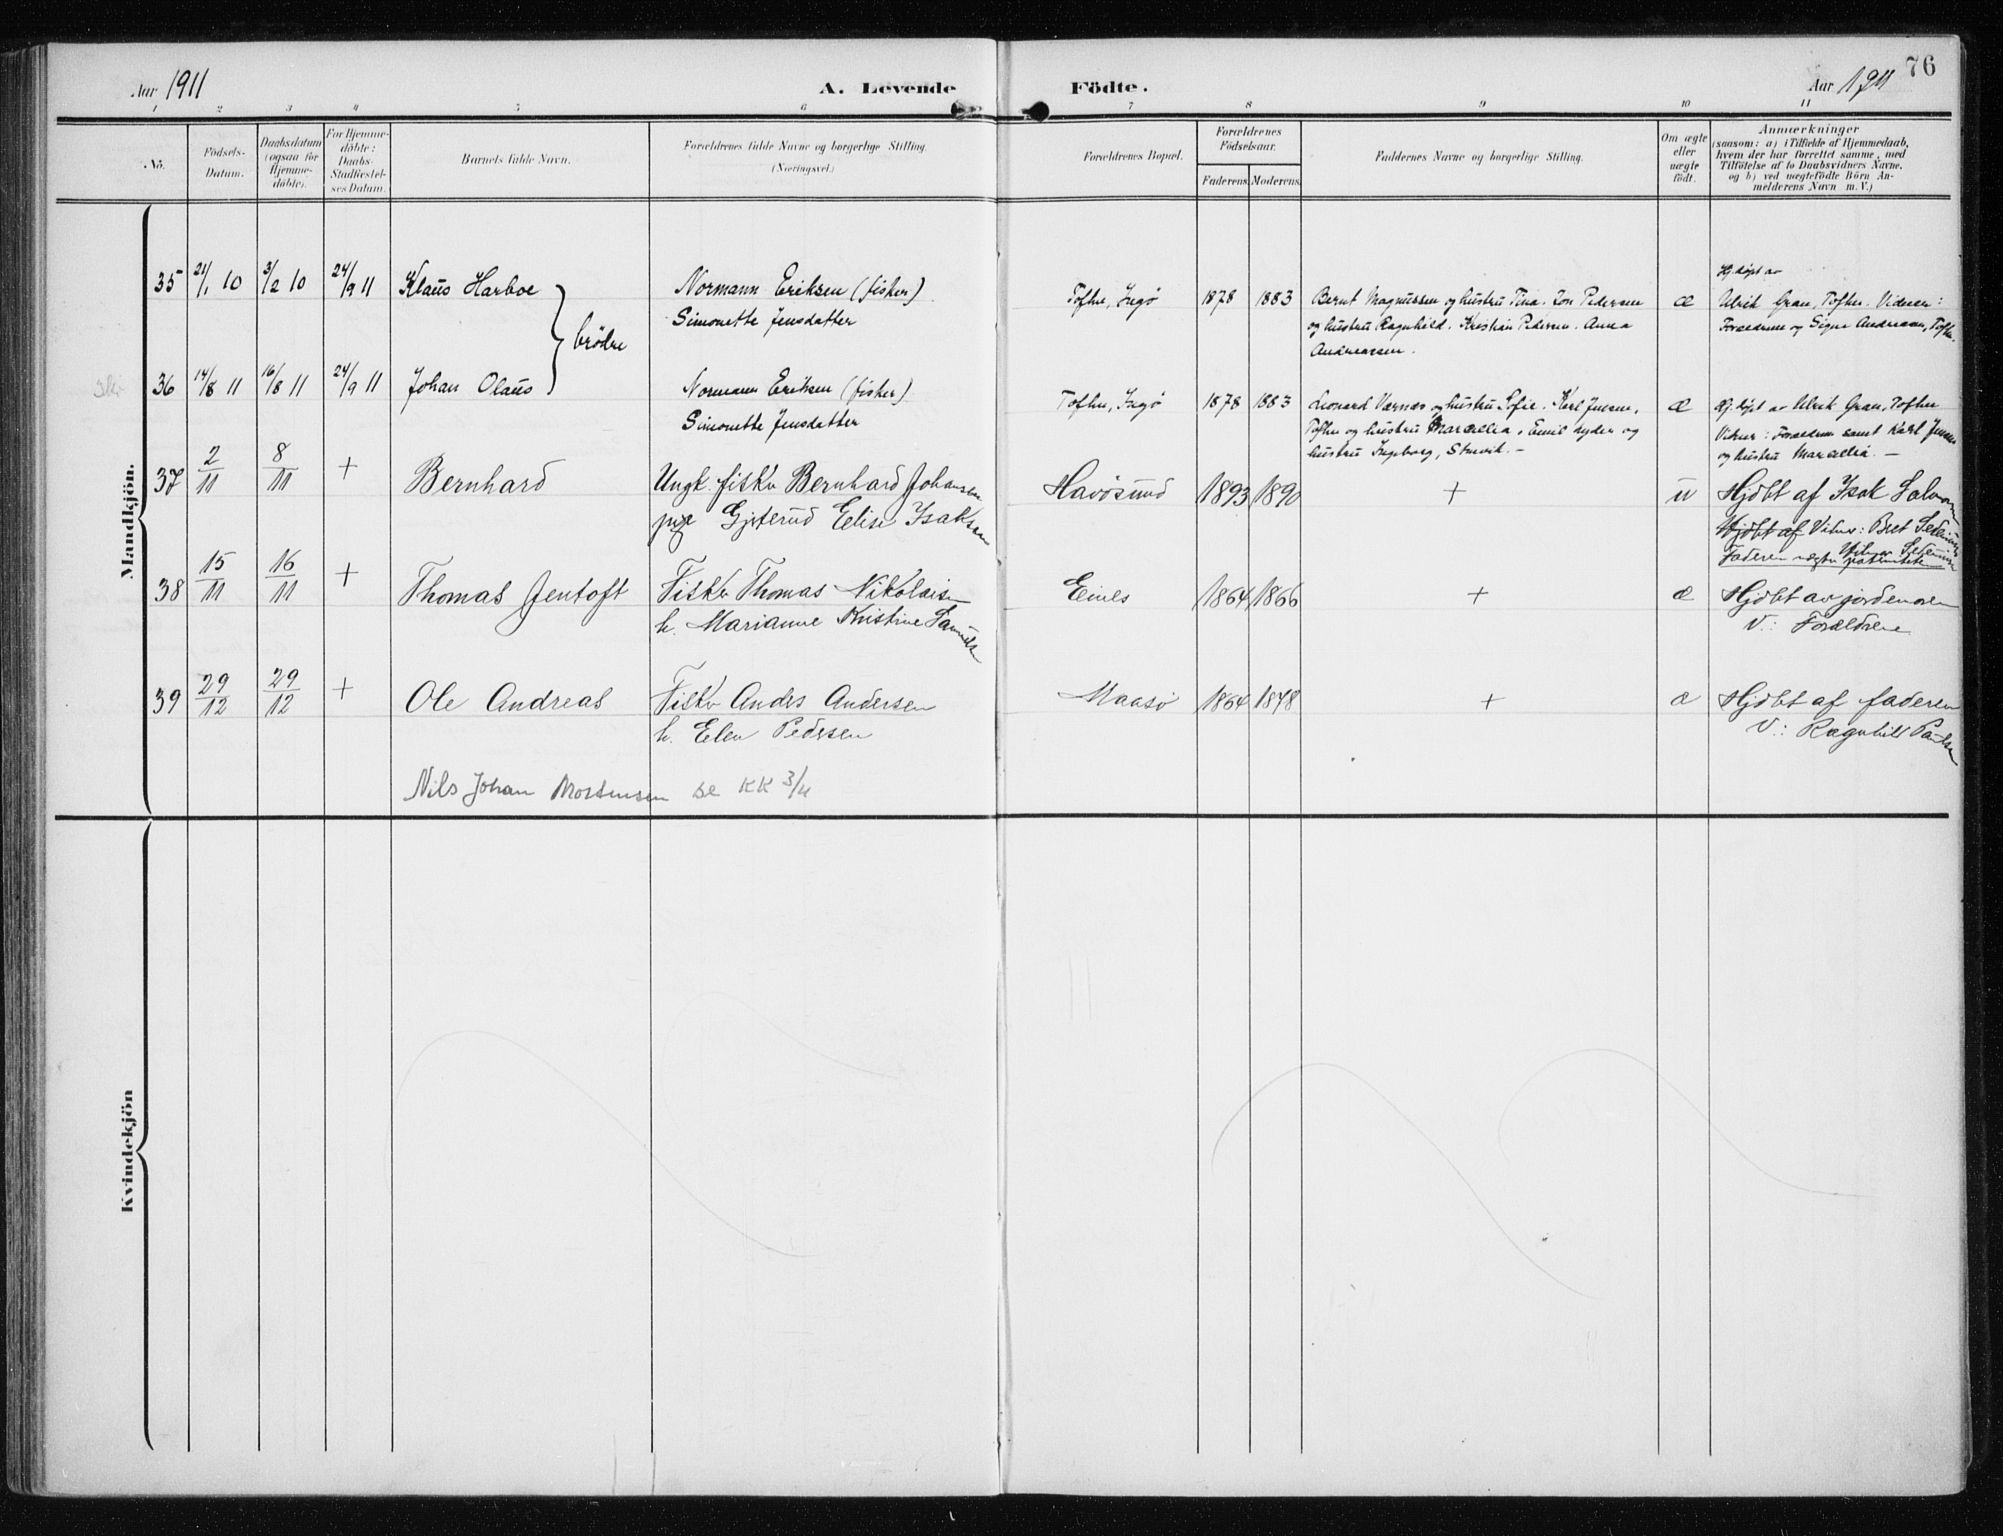 76
Aar 1911
A. Levende Födte.
Aar 1911
1 2 3 4 5 6 7 8 9 10 11
No.
Födsels-
Datum.
Daabsdatum
(ogsaa for
Hjemme-
döbte).
For Hjemme-
döbte:
Daabs-
Stadfæstel-
ses Datum.
Barnets fulde Navn.
Forældrenes fulde Navne og borgerlige Stilling.
(Næringsvei.)
Forældrenes Bopæl.
Forældrenes
Födselsaar.
Faderens. Moderens.
Faddernes Navne og borgerlige Stilling.
Om ægte
eller
uægte
födt.
Anmærkninger
(saasom: a) i Tilfælde af Hjemmedaab,
hvem der har forrettet samme, med
Tilföielse af to Daabsvidners Navne.
og b) ved uægtefödte Börn An-
melderens Navn m. V.)
Mandkjön.
35 21/1 10 3/2 10 24/9 11 Klaus Harboe
Normann Eriksen (fisker)
Simonette Jensdatter
Tofte, Ingö 1878 1883
Bernt Magnussen og hustru Tina. Jon Pedersen
og hustru Ragnhild. Kristian Pedersen. Anna
Andreassen.
æ
Hj. döpt av
Ulrik Gran, Tofte. Vidner:
Forældrene og Signe Andreassen, Tofte.
brödre
36 14/8 11 16/8 11 24/9 11 Johan Olaus
Normann Eriksen (fisker)
Simonette Jensdatter
Tofte, Ingö 1878 1883
Leonard Værnæs og hustru Sofie. Karl Jensen,
Tofte og hustru Marcelia. Emil Ryder og
hustru Ingeborg, Storvik. –
æ
Hj. döpt av Ulrik Gran, Tofte
Vidner: Forældrene samt Karl Jensen
og hustru Marcelia. –
37 2/11 8/11 + Bernhard
Ungk. fisker Bernhard Johansen
pige Gjertrud Elise Isaksen
Havösund 1893 1890 + u
Hjdbt af Isak Salomon
Hjdbt af Vidner: Bret
Faderen negter paterniteten
38 15/11 16/11 + Thomas Jentoft
Fisker Thomas Nikolaisen
h. Marianne Kristine
Eines 1864 1866 + æ
Hjdbt av jordemoren
V.: Forældrene
39 29/12 29/12 + Ole Andreas
Fisker Andes Andersen
h. Elen Pedersen
Maasö 1864 1878 + æ
Hjdbt af faderen
V.: Ragnhild
Nils Johan Mortensen se KK 3/11
Kvindekjön